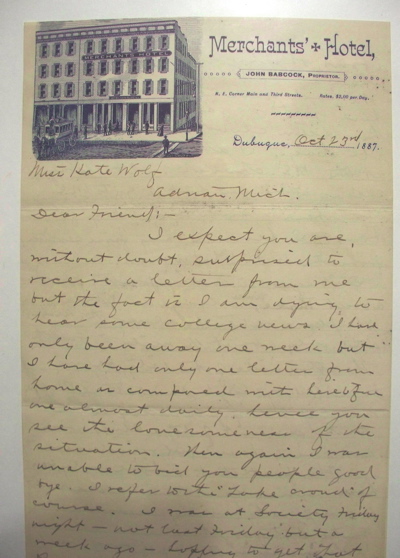 MERCHANTS HOTEL
Merchants' Hotel,
JOHN BABCOCK, PROPRIETOR.
N. E. Corner Main and Third Streets. Rates, $2.00 per Day.
Dubuque, Oct 23rd 1887.
Miss Kate Wolf
Adrian, Mich.
Dear Friend:-
I expect you are,
without doubt, surprised to
receive a letter from me
but the fact is I am dying to
hear some college news. I have
only been away one week but
I have had only one letter from
home as compared with heretofore
one almost daily, hence you
see the lonesomeness of the
situation. Then again I was
unable to bid you people good
bye. I refer to the "Lake crowd" of
course. I was at Society Friday
night - not last Friday but a
week ago - hoping to get that